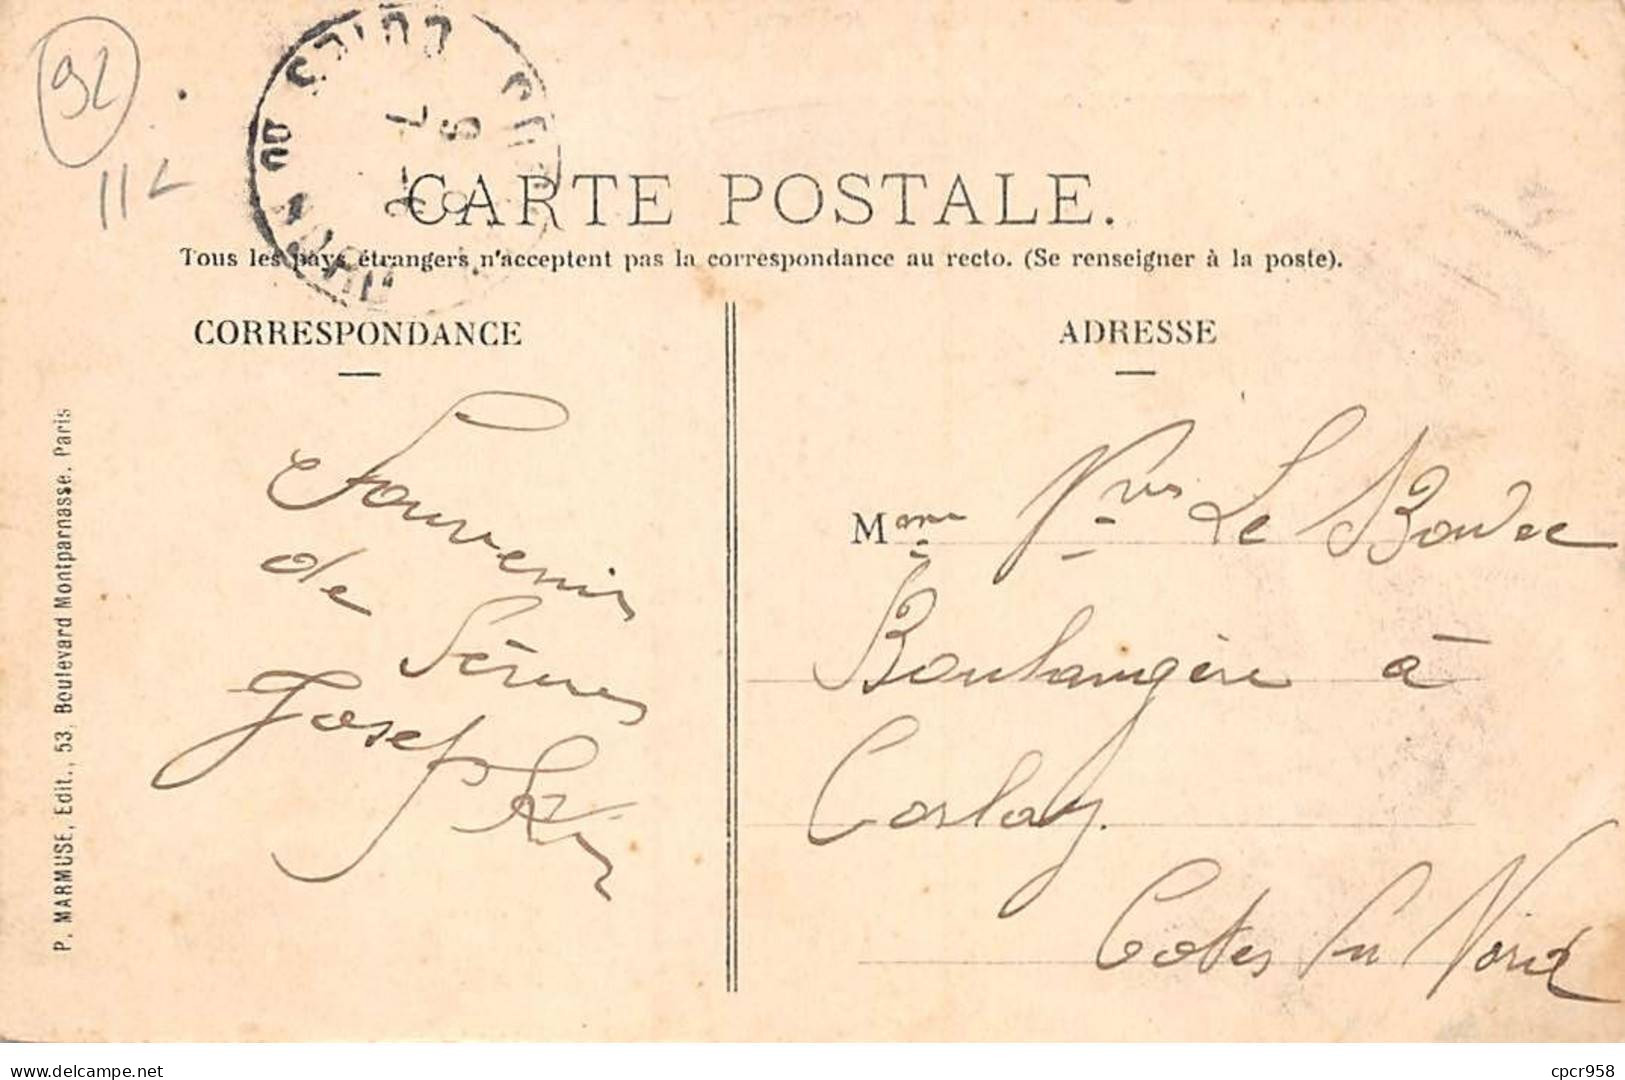 92
112
CARTE POSTALE.
Tous les pays étrangers n'acceptent pas la correspondance au recto. (Se renseigner à la poste).
CORRESPONDANCE
Souvenir
de
Sèvres
Joseph
P. MARMUSE, Edit., 53, Boulevard Montparnasse. Paris
ADRESSE
Mme Vve Le Boudec
Boulangère à
Corlay.
Cotes du Nord
delcampe.net
cpcr958